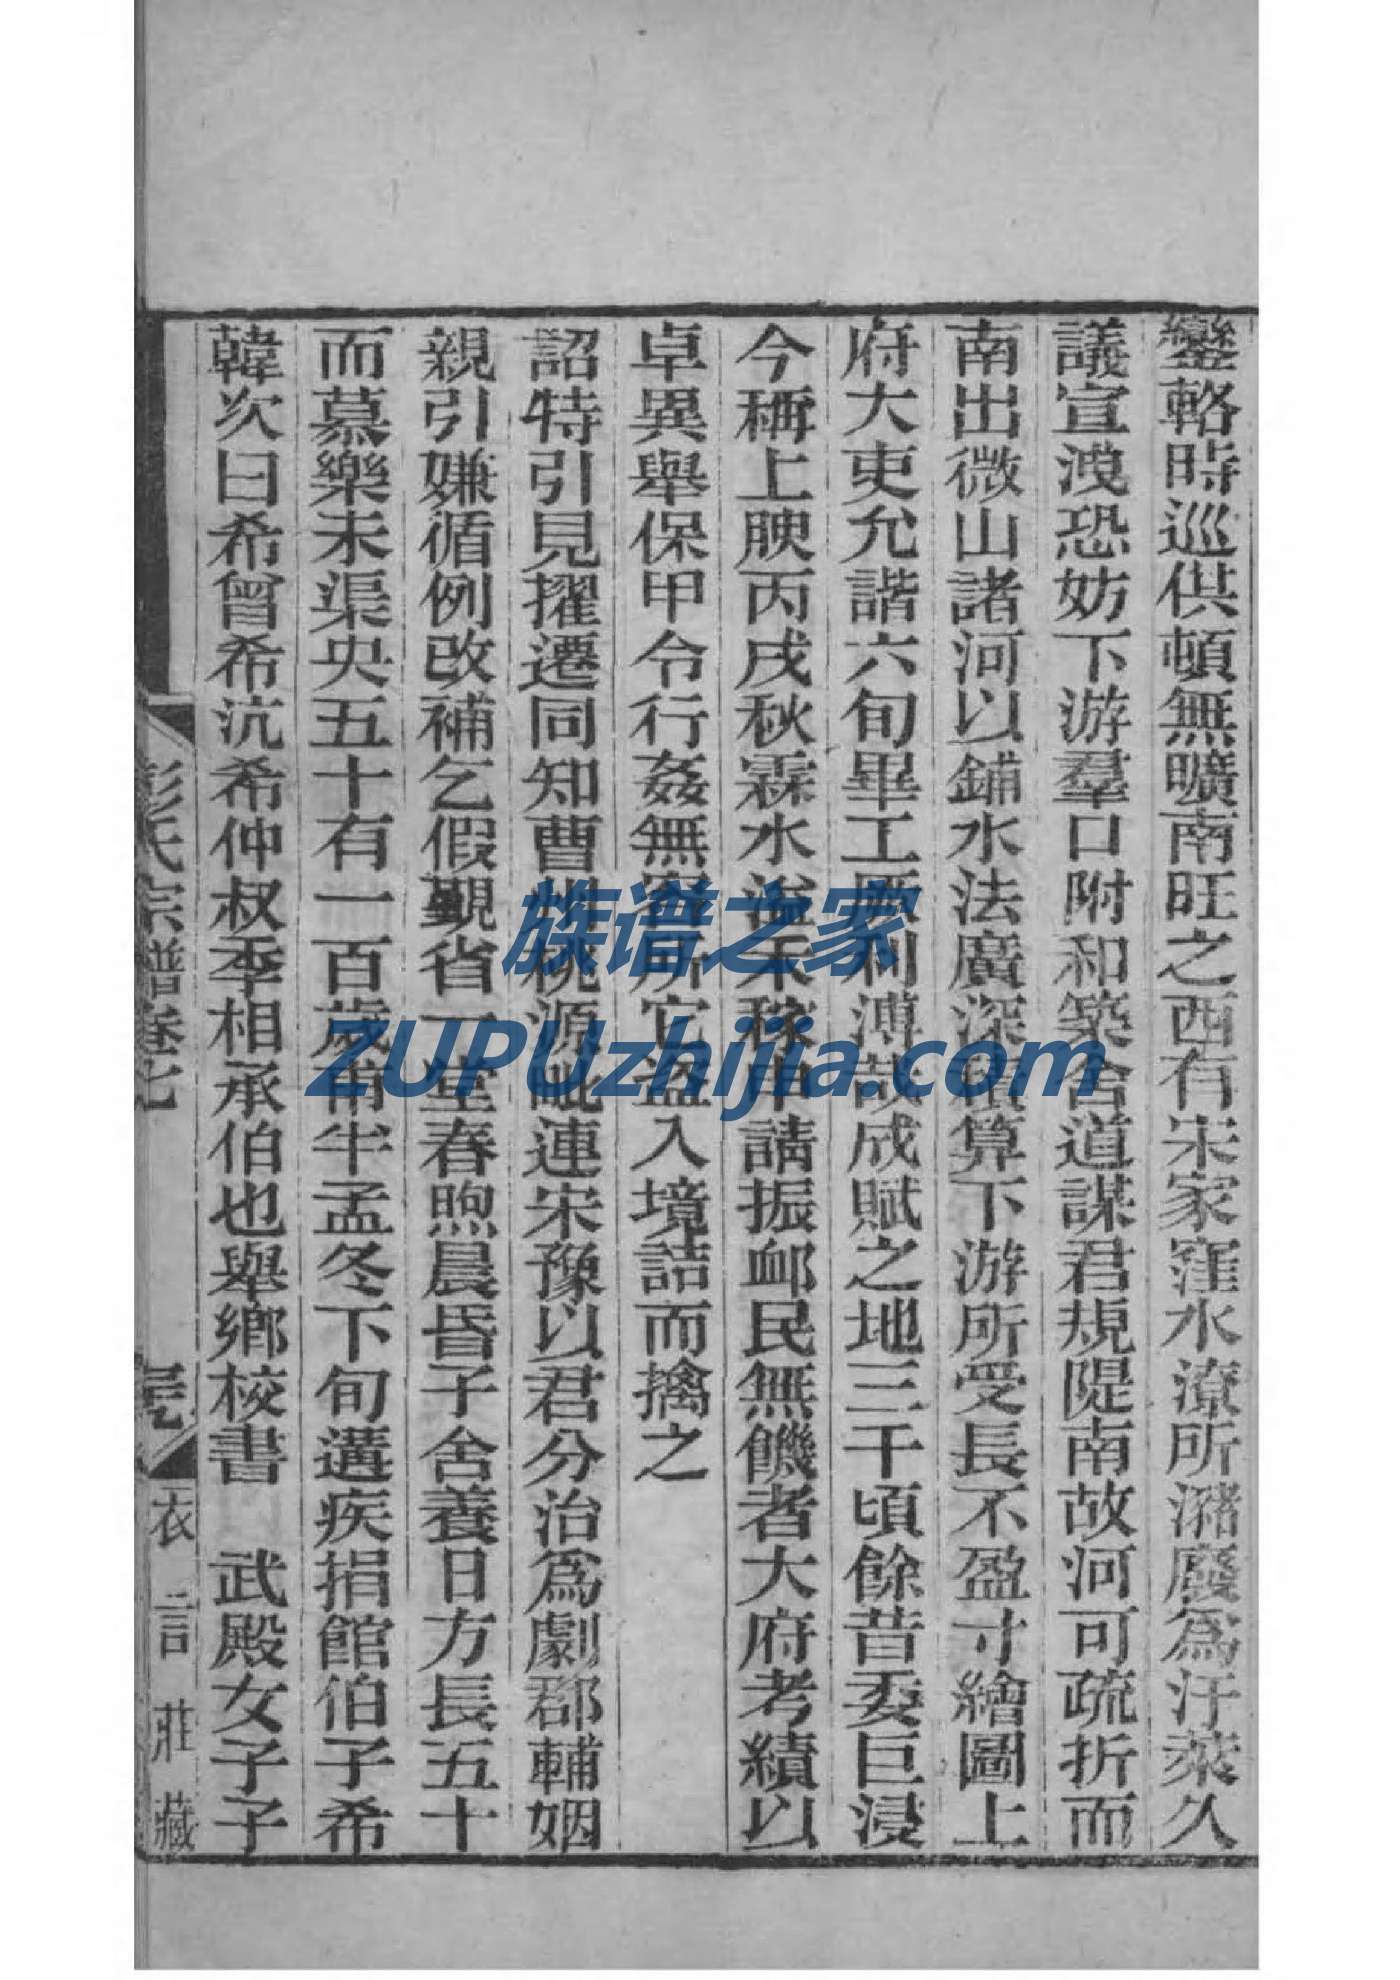 鑾輅時巡供頓無曠南旺之西有宋家窪水潦所瀦廢爲汙萊久
議宣洩恐妨下游羣口附和築舍道謀君規隄南故河可疏折而
南出微山諸河以鋪水法廣深積算下游所受長不盈寸繪圖上
府大吏允諧六旬畢工厥利溥哉成賦之地三千頃餘昔委巨浸
今稱上腴丙戌秋霖水溢禾稼申請振卹民無饑者大府考績以
卓異舉保甲令行姦無窩所它盜入境詰而擒之
詔特引見擢遷同知曹州桃源毗連宋豫以君分治爲劇郡輔姻
親引嫌循例改補乞假覲省一堂春煦晨昏子舍養日方長五十
而慕樂未渠央五十有一百歲甫半孟冬下旬遘疾捐館伯子希
韓次曰希曾希沆希仲叔季相承伯也舉鄉校書 武殿女子子
彭氏宗譜卷七
衣言莊藏
族谱之家
ZUPUzhijia.com